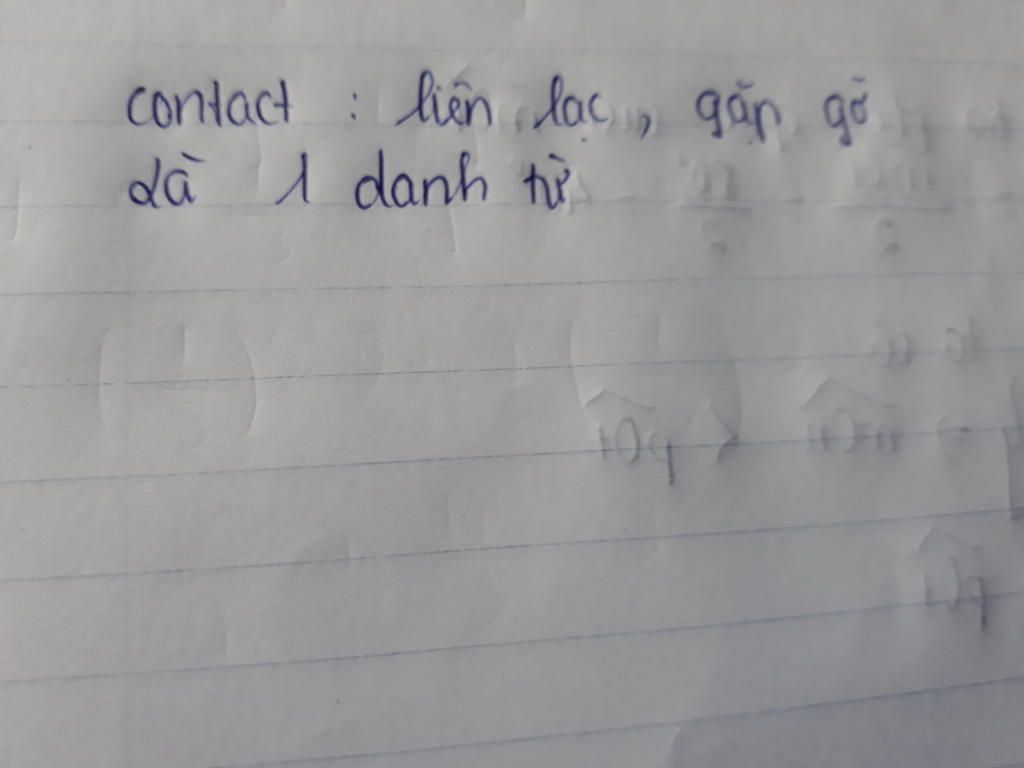 contact : liên lạc, gặp gỡ
là 1 danh từ